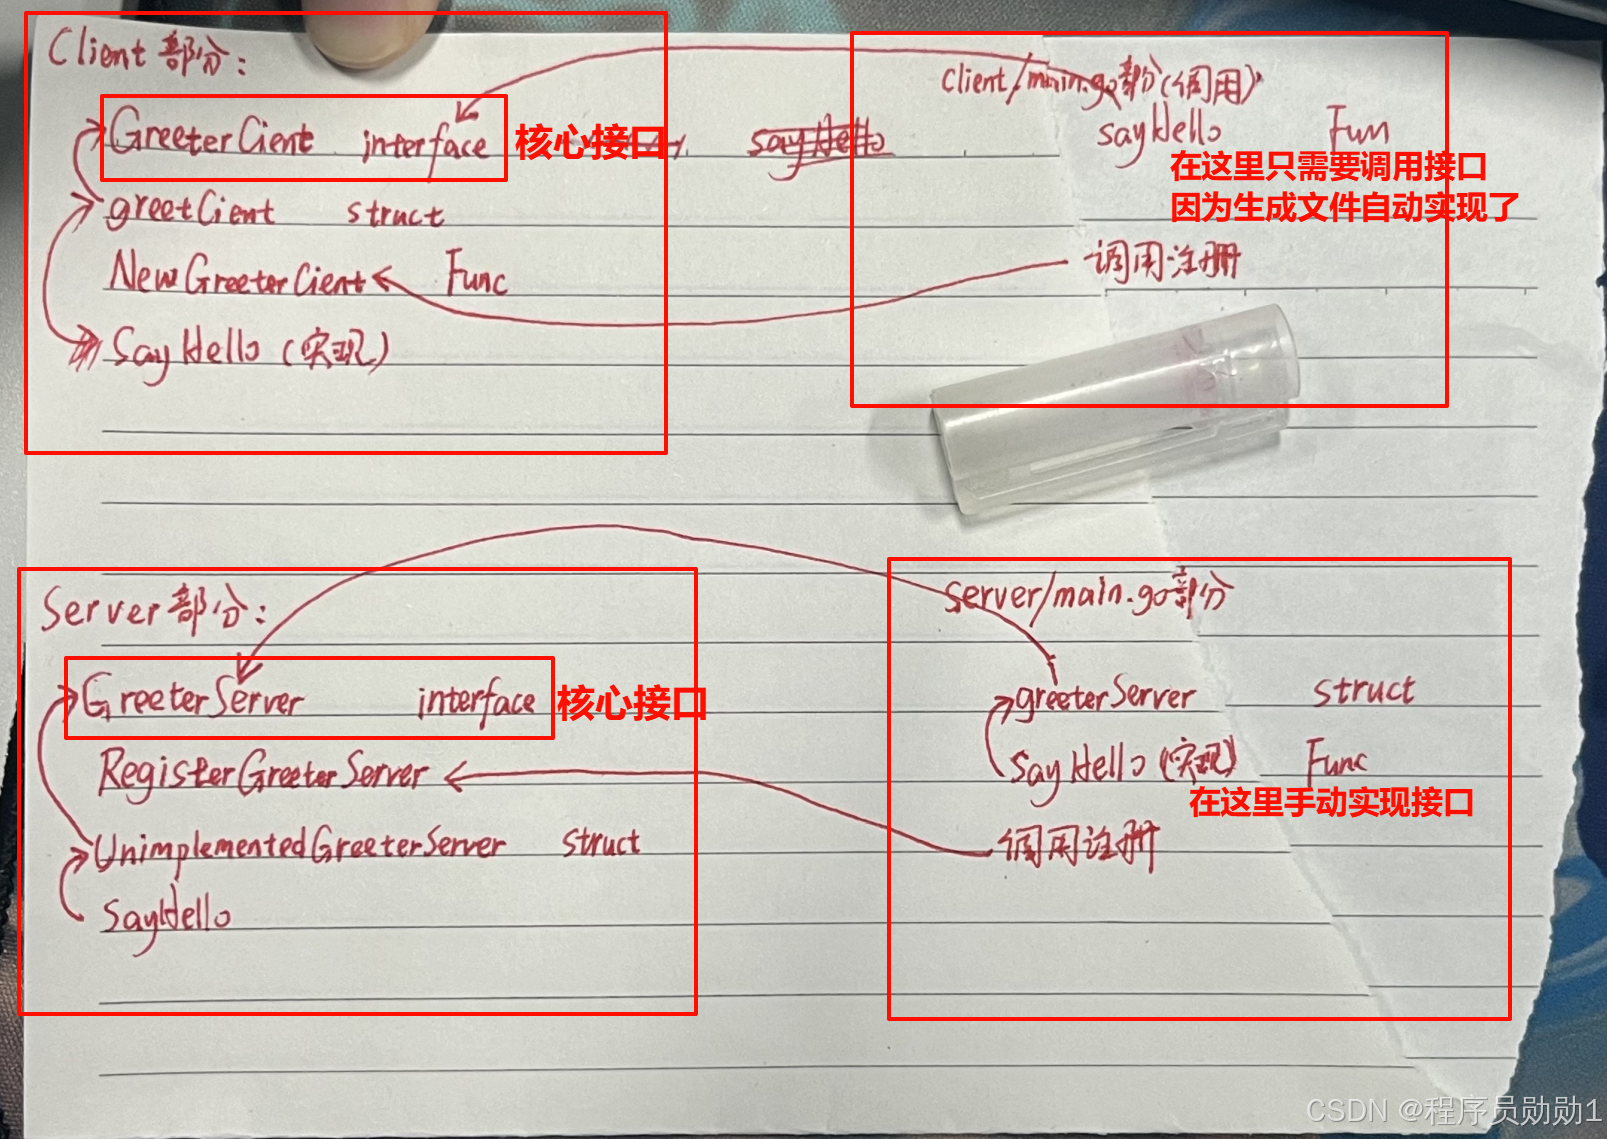 Client部分:
GreeterCient interface 核心接口
greetCient struct
NewGreeterCient Func
SayHello (实现)
client/main.go部分(调用)
sayHello Fun
在这里只需要调用接口
因为生成文件自动实现了
调用注册
Server部分:
GreeterServer interface 核心接口
RegisterGreeterServer
UnimplementedGreeterServer struct
SayHello
server/main.go部分
greeterServer struct
SayHello (实现) Func
在这里手动实现接口
调用注册
CSDN @程序员勋勋1